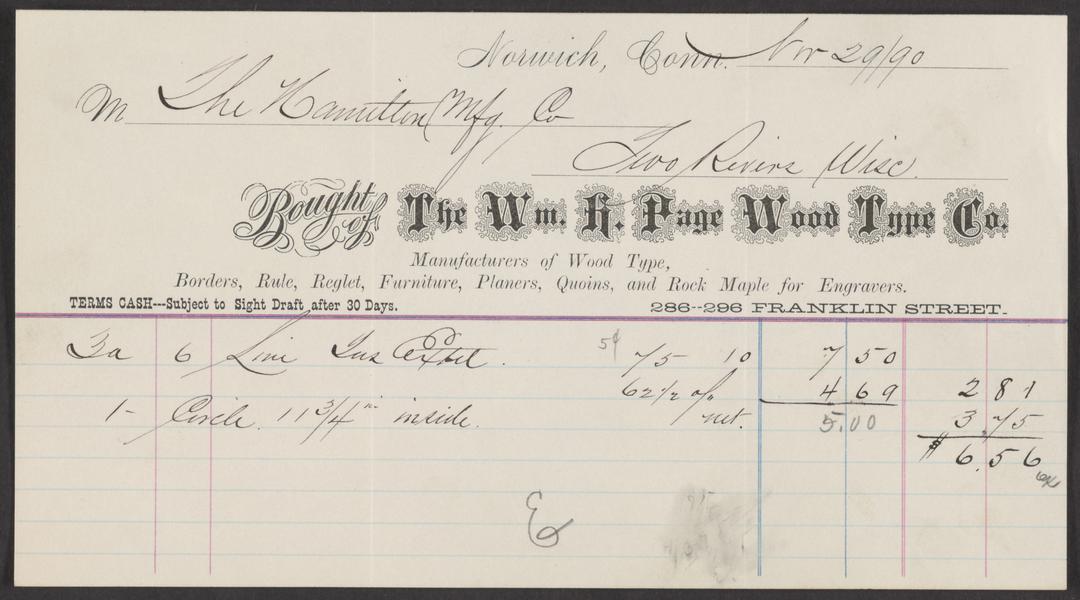 Norwich, Conn. Nov 29/90
M The Hamilton Mfg. Co
Two Rivers Wisc.
Bought of The Wm. H. Page Wood Type Co.
Manufacturers of Wood Type,
Borders, Rule, Reglet, Furniture, Planers, Quoins, and Rock Maple for Engravers.
TERMS CASH---Subject to Sight Draft after 30 Days. 286--296 FRANKLIN STREET.
3a 6 Line 5¢ 75 10 7 50
62 1/2 off 4 69 2 81
1- Circle. 11 3/4 in inside. net. 5.00 3.75
$ 6.56